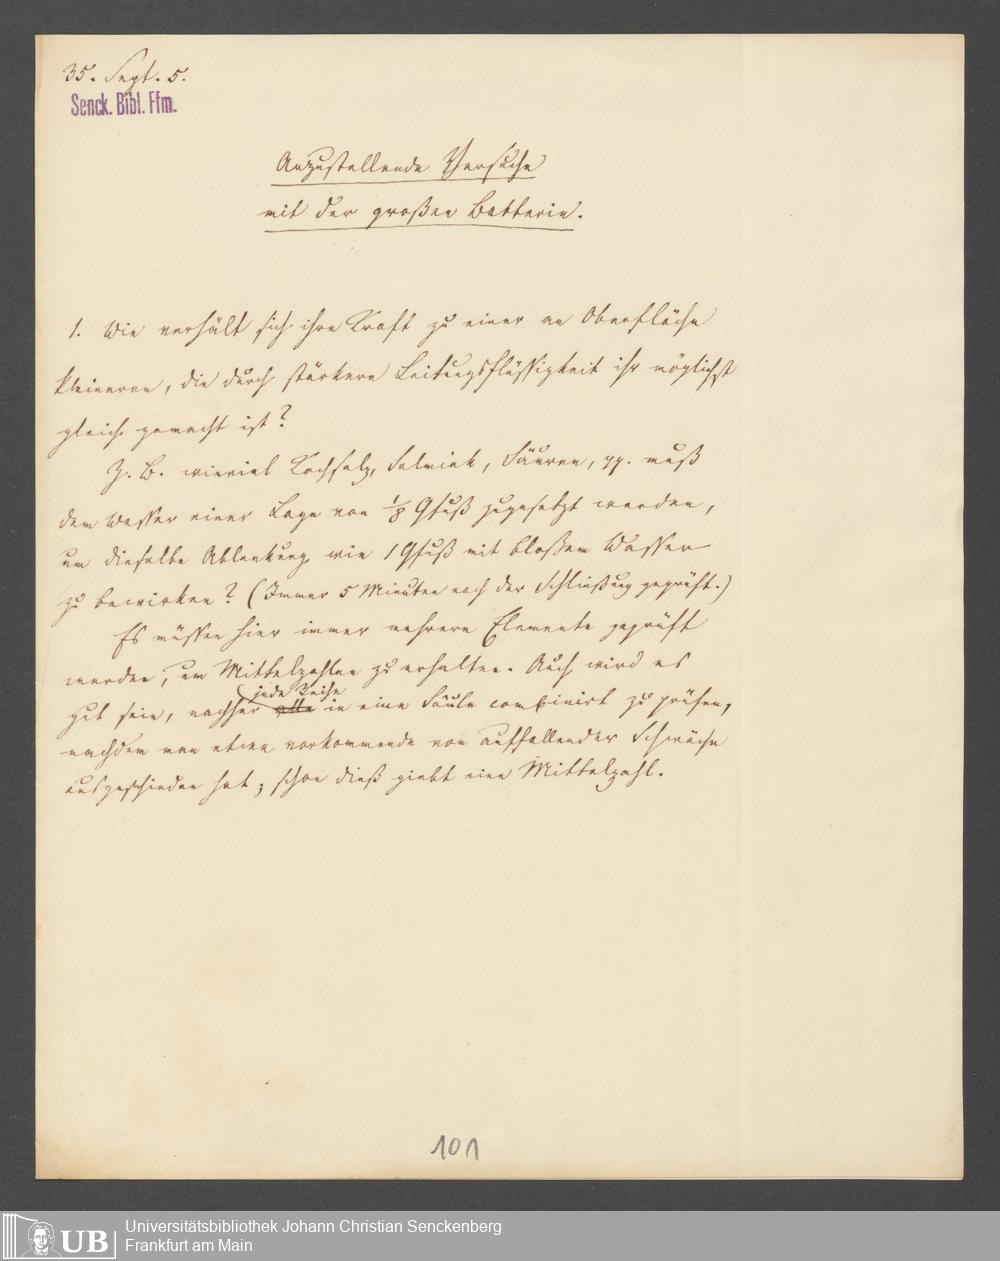 35. Sept. 5.
Senck. Bibl. Ffm.
Anzustellende Versuche
mit der großen Batterie.
1. Wie verhält sich ihre Kraft zu einer an Oberfläche
kleineren, die durch stärkere Leitungsflüssigkeit ihr möglichst
gleich gemacht ist?
Z. B. wieviel Kochsalz, Salmiak, Säuren, pp. muß
dem Wasser einer Lage von 1/8 Qfuß zugesetzt werden,
um dieselbe Ablenkung wie 1 Qfuß mit bloßem Wasser
zu bewirken? (Immer 5 Minuten nach der Schließung geprüft.)
Es müssen hier immer mehrere Elemente geprüft
werden, um Mittelzahlen zu erhalten. Auch wird es
jede Reihe
gut sein, nachher alle in eine Säule combinirt zu prüfen,
nachdem man etwa vorkommende von auffallender Schwäche
ausgeschieden hat; schon dieß giebt eine Mittelzahl.
101
UB
Universitätsbibliothek Johann Christian Senckenberg
Frankfurt am Main